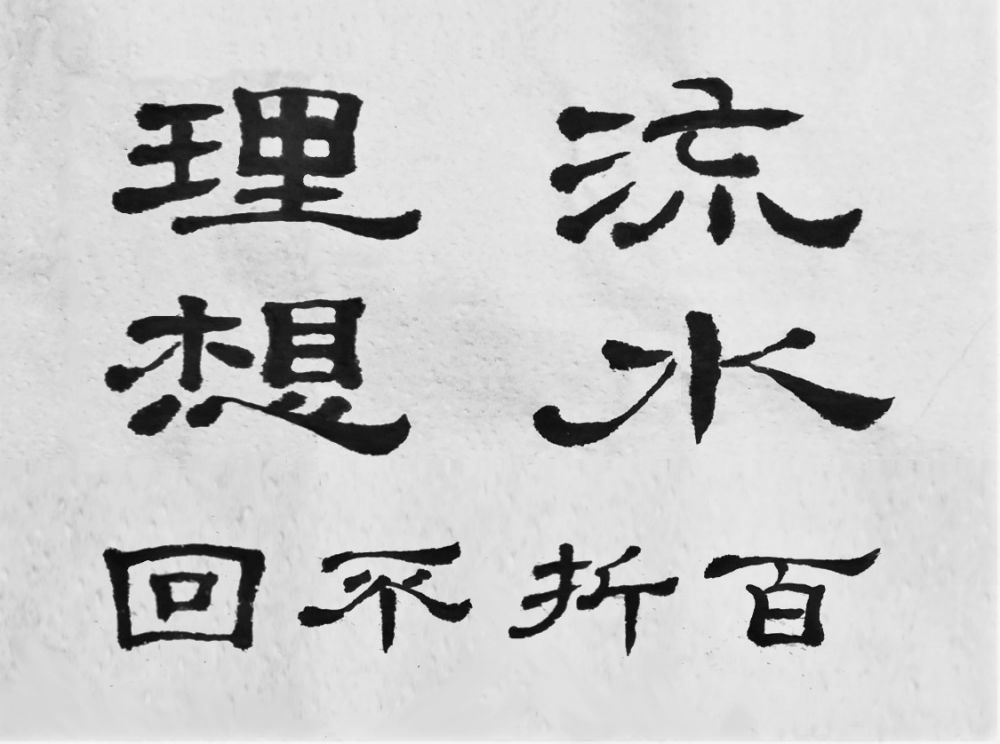 流水
理想
百折不回